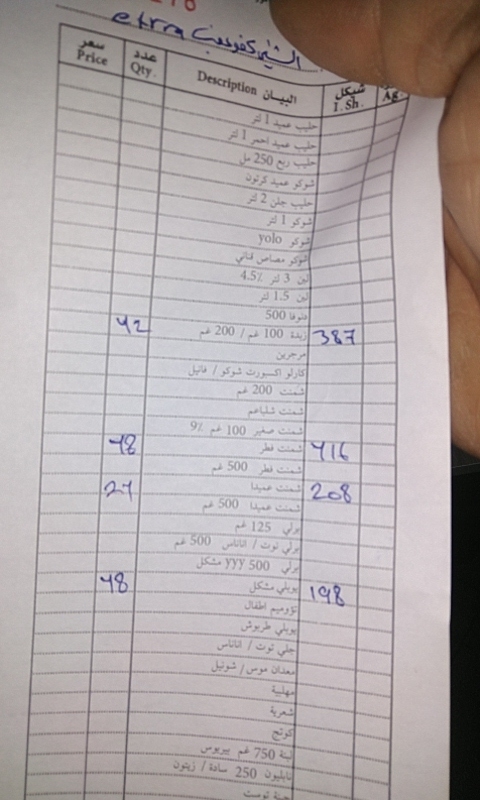 etrra
سعر عدد البيـــان Description شيكل
Price Qty. I. Sh. Ag.
حليب عميد 1 لتر
حليب عميد احمر 1 لتر
حليب ربع 250 مل
شوكو عميد كرتون
حليب جلن 2 لتر
شوكو 1 لتر
شوكو yolo
شوكو مصاص قناني
لبن 3 لتر 4.5٪
لبن 1.5 لتر
500
42 زبدة 100 غم / 200 غم 387
مرجرين
كارلو اكسبورت شوكو / فانيل
شمنت 200 غم
شمنت شلباغم
شمنت صغير 100 غم 9٪
48 شمنت قطر 416
شمنت قطر 500 غم
24 شمنت عميدا 208
شمنت عميدا 500 غم
برلي 125 غم
برلي توت / اناناس 500 غم
برلي 500 yyy مشكل
48 يوبلي مشكل 198
تؤوميم اطفال
يوبلي طربوش
جلي توت / اناناس
معدان موس / شونيل
مهلبية
شعرية
كوتج
لبنة 750 غم بيريوس
نابليون 250 سادة / زيتون
جبنة توست